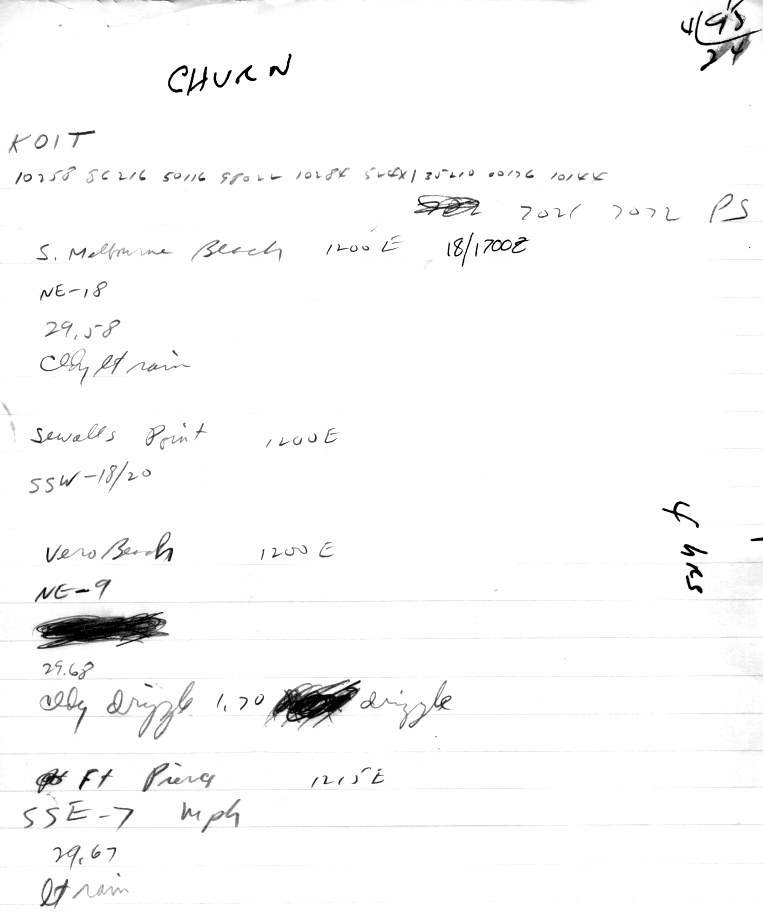 4/95
24
CHURN
KOIT
10258 86216 50116 98022 10284 35210 00176 10144
7021 7072 PS
S. Melbourne Beach 1200 E 18/1700Z
NE-18
29.58
Cldy lt rain
Sewalls Point 1200E
SSW-18/20
4 hrs
Vero Beach 1200 E
NE-9
29.68
Cldy drizzle 1.70 drizzle
Ft Pierce 1215E
SSE-7 mph
29.67
lt rain